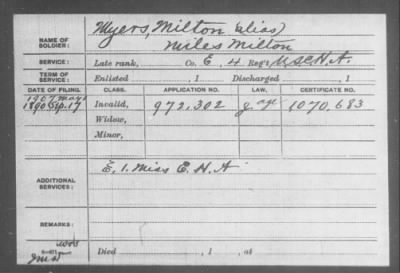 NAME OF SOLDIER: Myers, Milton (alias)
Miles Milton
SERVICE: Late rank, Co. E, 4 Reg't U.S.C.H.A.
TERM OF SERVICE: Enlisted , 1 Discharged , 1
DATE OF FILING. CLASS. APPLICATION NO. LAW. CERTIFICATE NO.
1907 May
1890 Sep. 17 Invalid, 972,302 g. age 1070,683
Widow,
Minor,
ADDITIONAL SERVICES: E, 1. Miss C. H. A
REMARKS:
Died , 1 , at